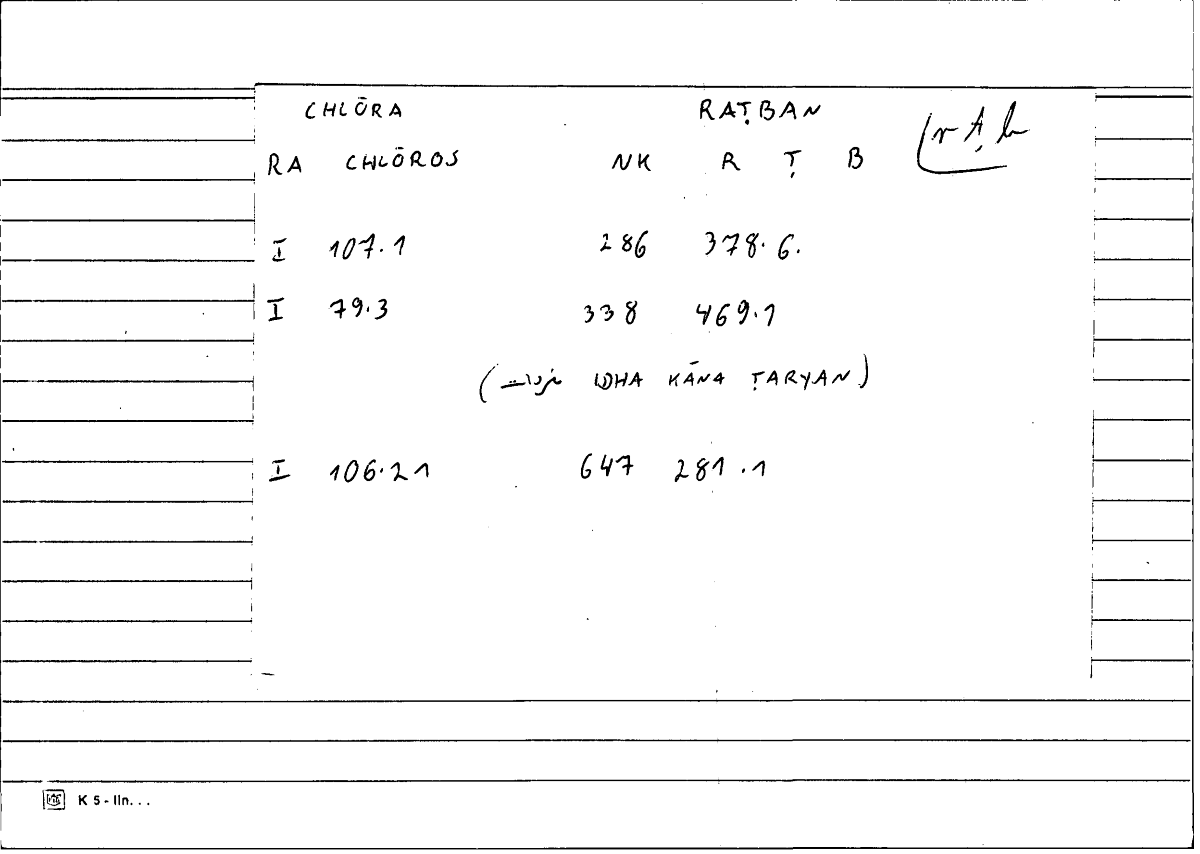 CHLŌRA RAṬBAN
RA CHLŌROS NK R Ṭ B rṭb
I 107.1 286 378.6.
I 79.3 338 469.1
( IDHA KĀNA ṬARYAN)
I 106.21 647 281.1
K 5 - IIn. . .